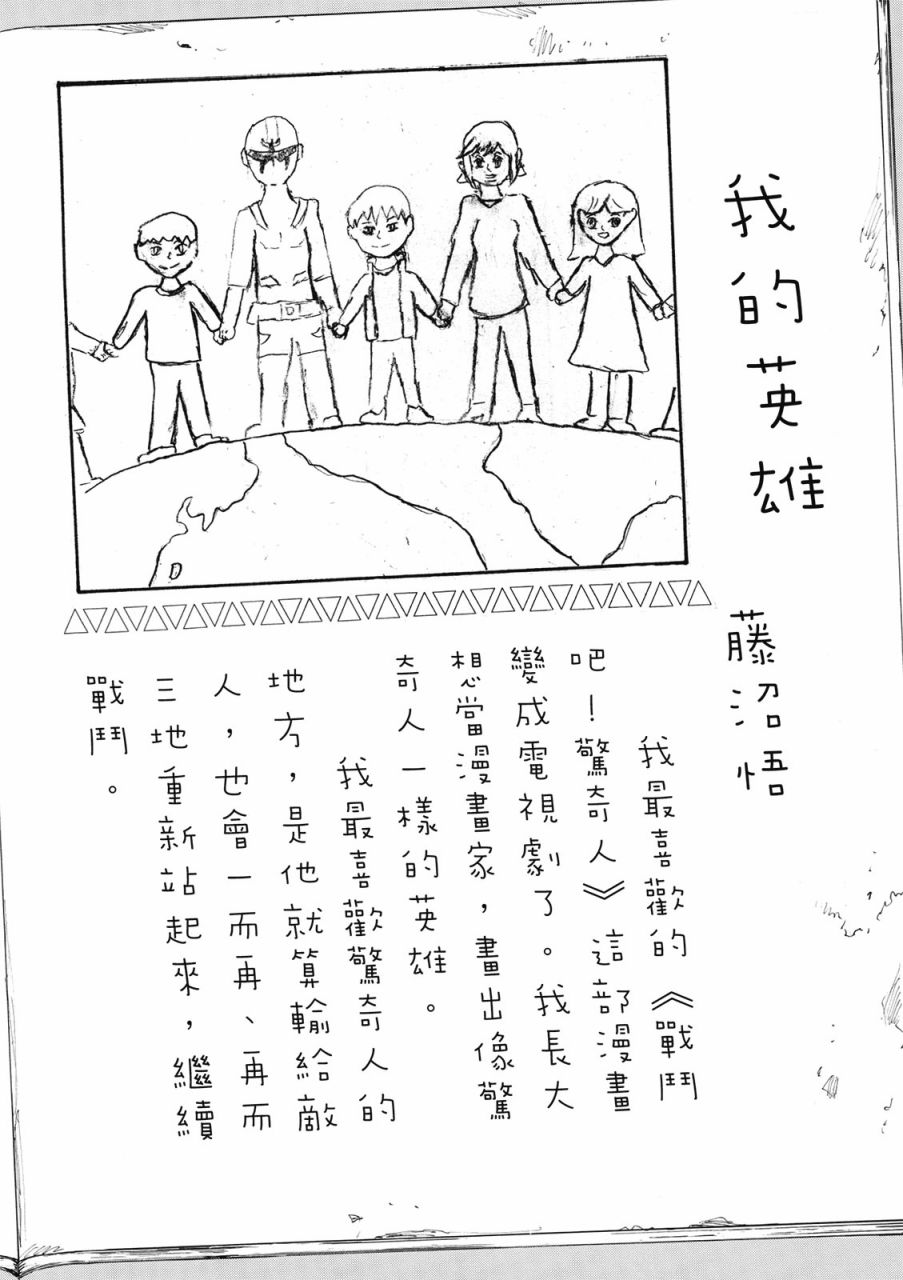 我的英雄
藤沼悟
我最喜歡的《戰鬥
吧！驚奇人》這部漫畫
變成電視劇了。我長大
想當漫畫家，畫出像驚
奇人一樣的英雄。
我最喜歡驚奇人的
地方，是他就算輸給敵
人，也會一而再、再而
三地重新站起來，繼續
戰鬥。